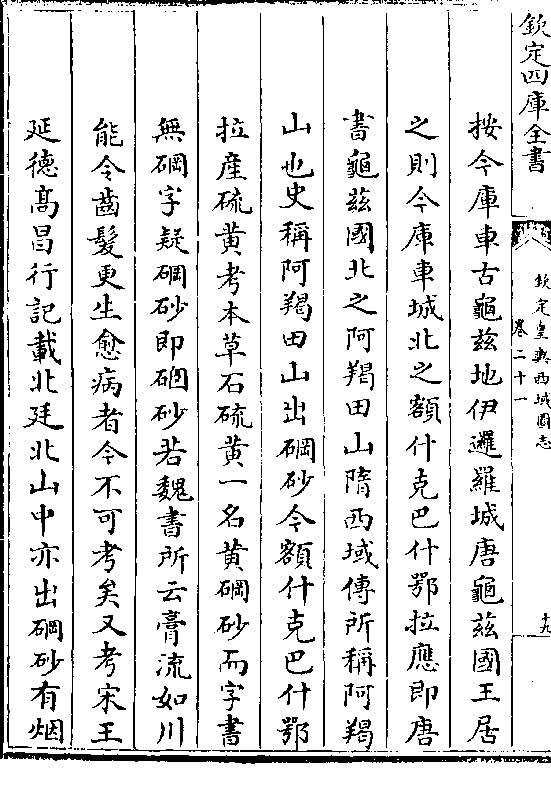 欽定四庫全書
欽定皇輿西域圖志
卷二十一
十九
按今庫車古龜兹地伊邏羅城唐龜兹國王居
之則今庫車城北之額什克巴什鄂拉應即唐
書龜兹國北之阿羯田山隋西域傳所稱阿羯
山也史稱阿羯田山出碙砂今額什克巴什鄂
拉産硫黄考本草石硫黄一名黄碙砂而字書
無碙字疑碙砂即硇砂若魏書所云膏流如川
能令齒髮更生愈病者今不可考矣又考宋王
延德髙昌行記載北廷北山中亦出碙砂有烟